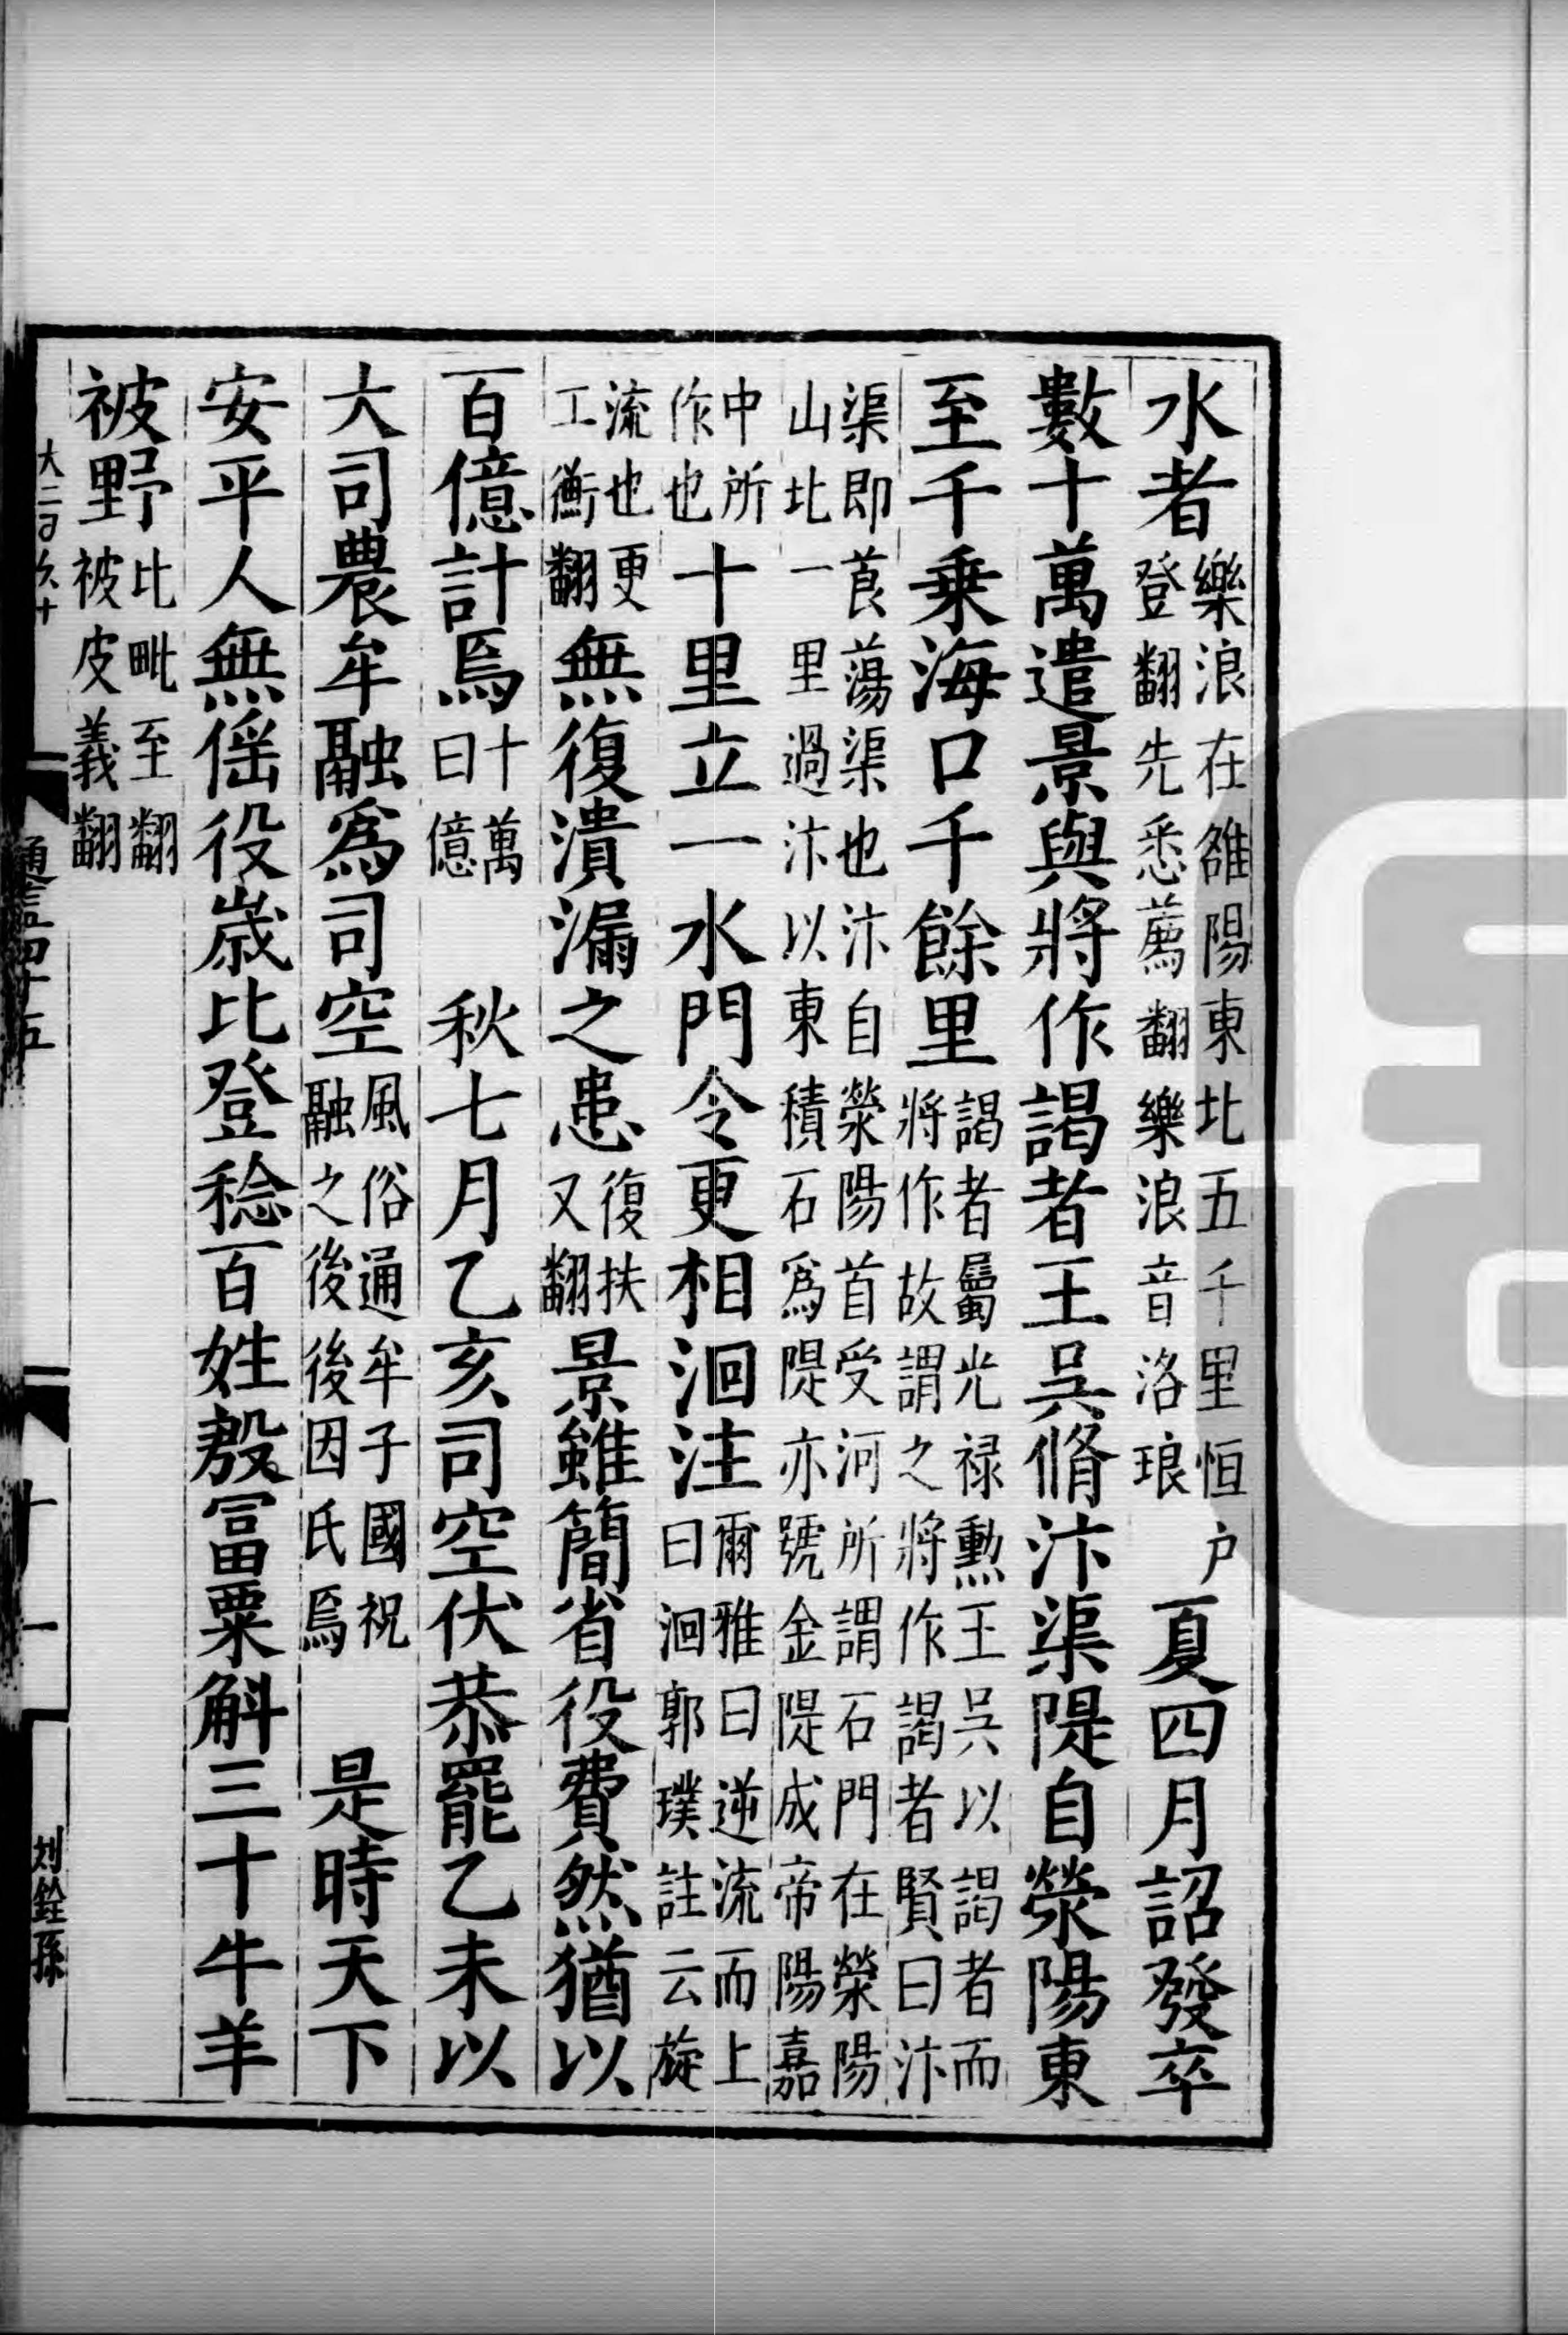 水者樂浪在雒陽東北五千里恒户登翻先悉薦翻樂浪音洛琅夏四月詔發卒
數十萬遣景與將作謁者王吳脩汴渠隄自滎陽東
至千乗海口千餘里謁者屬光禄勲王吳以謁者而將作故謂之將作謁者賢曰汴
渠即莨蕩渠也汴自滎陽首受河所謂石門在滎陽山北一里過汴以東積石爲隄亦號金隄成帝陽嘉
中所作也十里立一水門令更相洄注爾雅曰逆流而上曰洄郭璞註云旋
流也更工衡翻無復潰漏之患復扶又翻景雖簡省役費然猶以
百億計焉十萬曰億秋七月乙亥司空伏恭罷乙未以
大司農牟融爲司空風俗通牟子國祝融之後後因氏焉是時天下
安平人無徭役歳比登稔百姓殷富粟斛三十牛羊
被野比毗至翻被皮義翻
通鑑四十五
十一
刘銓孫